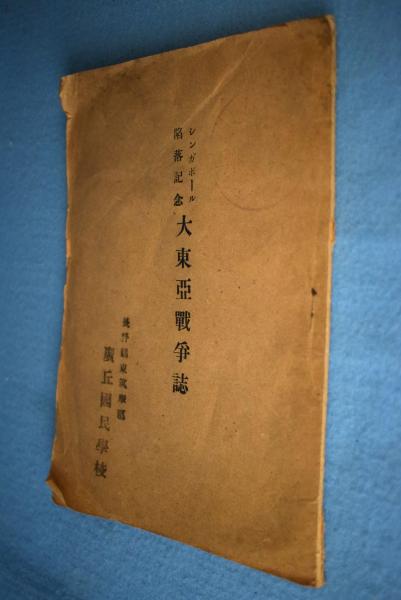 シンガポール
陥落記念
大東亞戰爭誌
長野縣東筑摩郡
廣丘國民學校